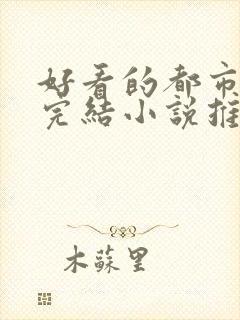 好看的都市
完結小說推
木蘇里